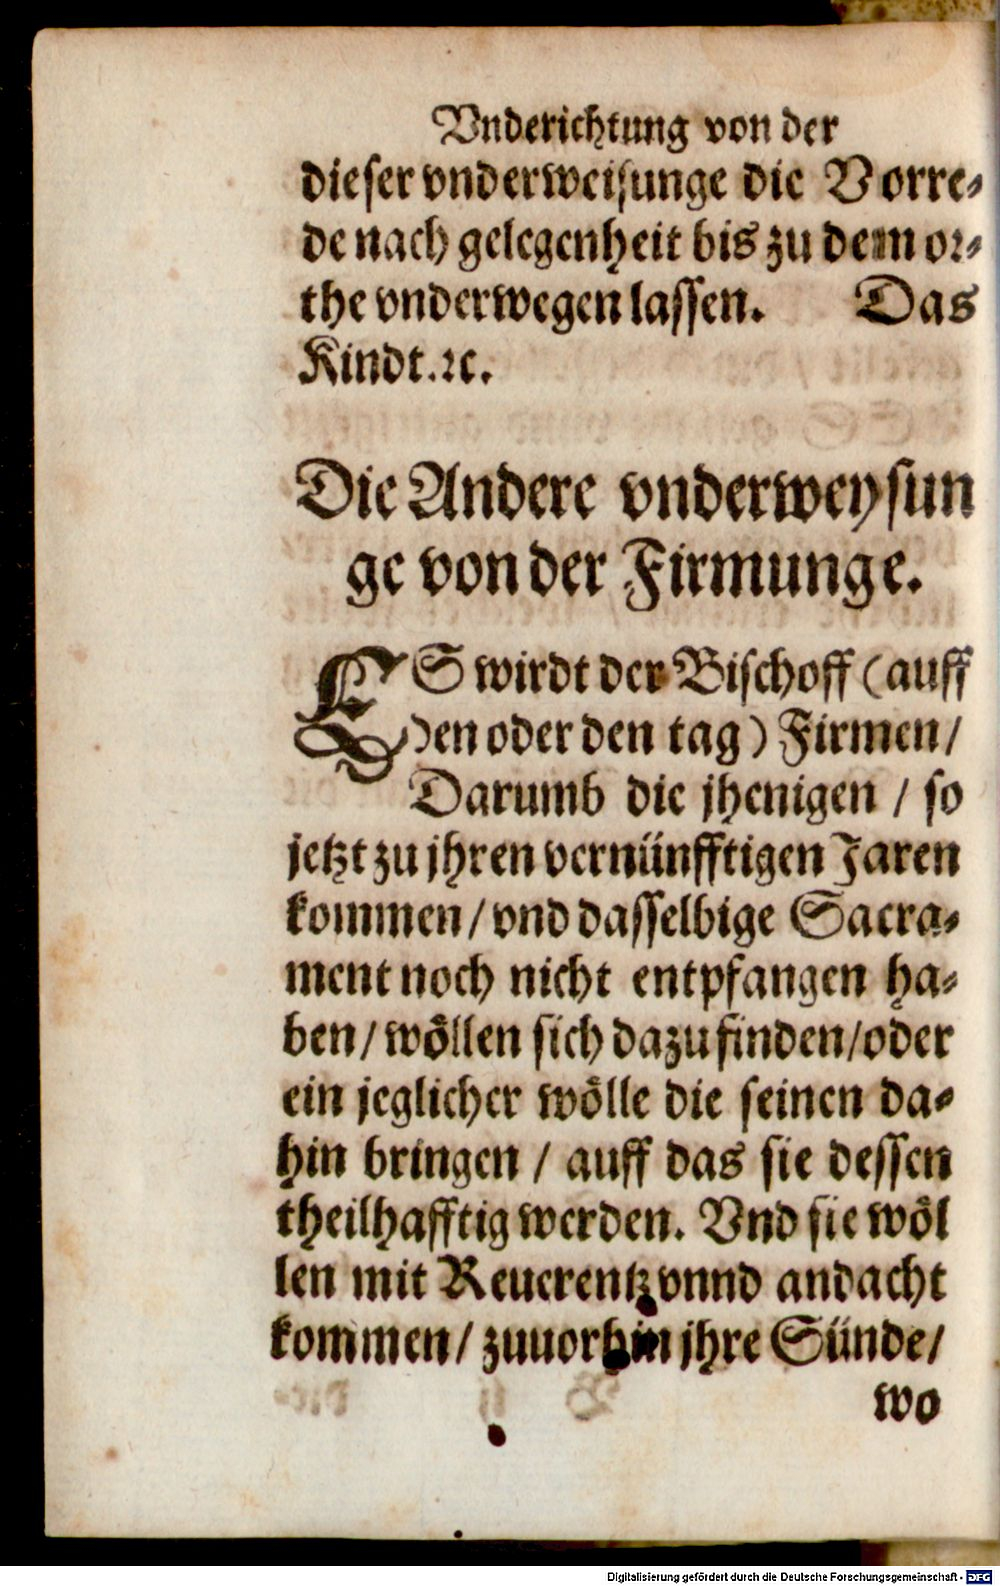 Vnderichtung von der
dieser vnderweisunge die Vorre-
de nach gelegenheit bis zu dem or-
the vnderwegen lassen. Das
Kindt. ꝛc.
Die Andere vnderweysun
ge von der Firmunge.
ES wirdt der Bischoff (auff
den oder den tag) Firmen/
Darumb die jhenigen / so
jetzt zu jhren vernünfftigen Jaren
kommen/ vnd dasselbige Sacra-
ment noch nicht entpfangen ha-
ben/ wöllen sich dazu finden/oder
ein jeglicher wölle die seinen da-
hin bringen / auff das sie dessen
theilhafftig werden. Vnd sie wöl
len mit Reuerentz vnnd andacht
kommen/ zuuorhin jhre Sünde/
wo
Digitalisierung gefördert durch die Deutsche Forschungsgemeinschaft - DFG